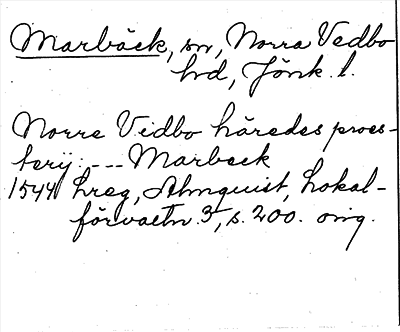 Marbäck, sn, Norra Vedbo
hd, Jönk. l.
Norre Vidbo häredes proes-
terij: --- Marbeck
1544 hreg, Almquist, Lokal-
förvaltn. 3, s. 200. orig.